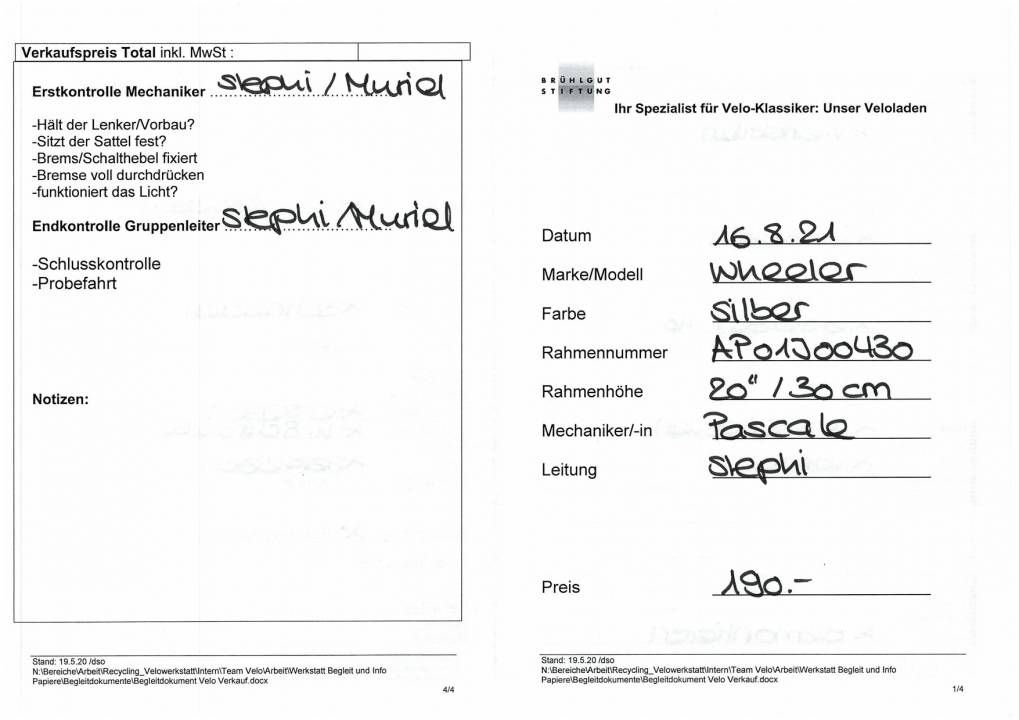 Verkaufspreis Total inkl. MwSt :
Erstkontrolle Mechaniker Stephi / Muriel
-Hält der Lenker/Vorbau?
-Sitzt der Sattel fest?
-Brems/Schalthebel fixiert
-Bremse voll durchdrücken
-funktioniert das Licht?
Endkontrolle Gruppenleiter Stephi / Muriel
-Schlusskontrolle
-Probefahrt
Notizen:
Stand: 19.5.20 /dso
N:\Bereiche\Arbeit\Recycling_Velowerkstatt\Intern\Team Velo\Arbeit\Werkstatt Begleit und Info
Papiere\Begleitdokumente\Begleitdokument Velo Verkauf.docx
4/4
BRÜHLGUT
STIFTUNG
Ihr Spezialist für Velo-Klassiker: Unser Veloladen
Datum 16.8.21
Marke/Modell Wheeler
Farbe Silber
Rahmennummer AP01J00430
Rahmenhöhe 20" / 30 cm
Mechaniker/-in Pascale
Leitung Stephi
Preis 190.-
Stand: 19.5.20 /dso
N:\Bereiche\Arbeit\Recycling_Velowerkstatt\Intern\Team Velo\Arbeit\Werkstatt Begleit und Info
Papiere\Begleitdokumente\Begleitdokument Velo Verkauf.docx
1/4